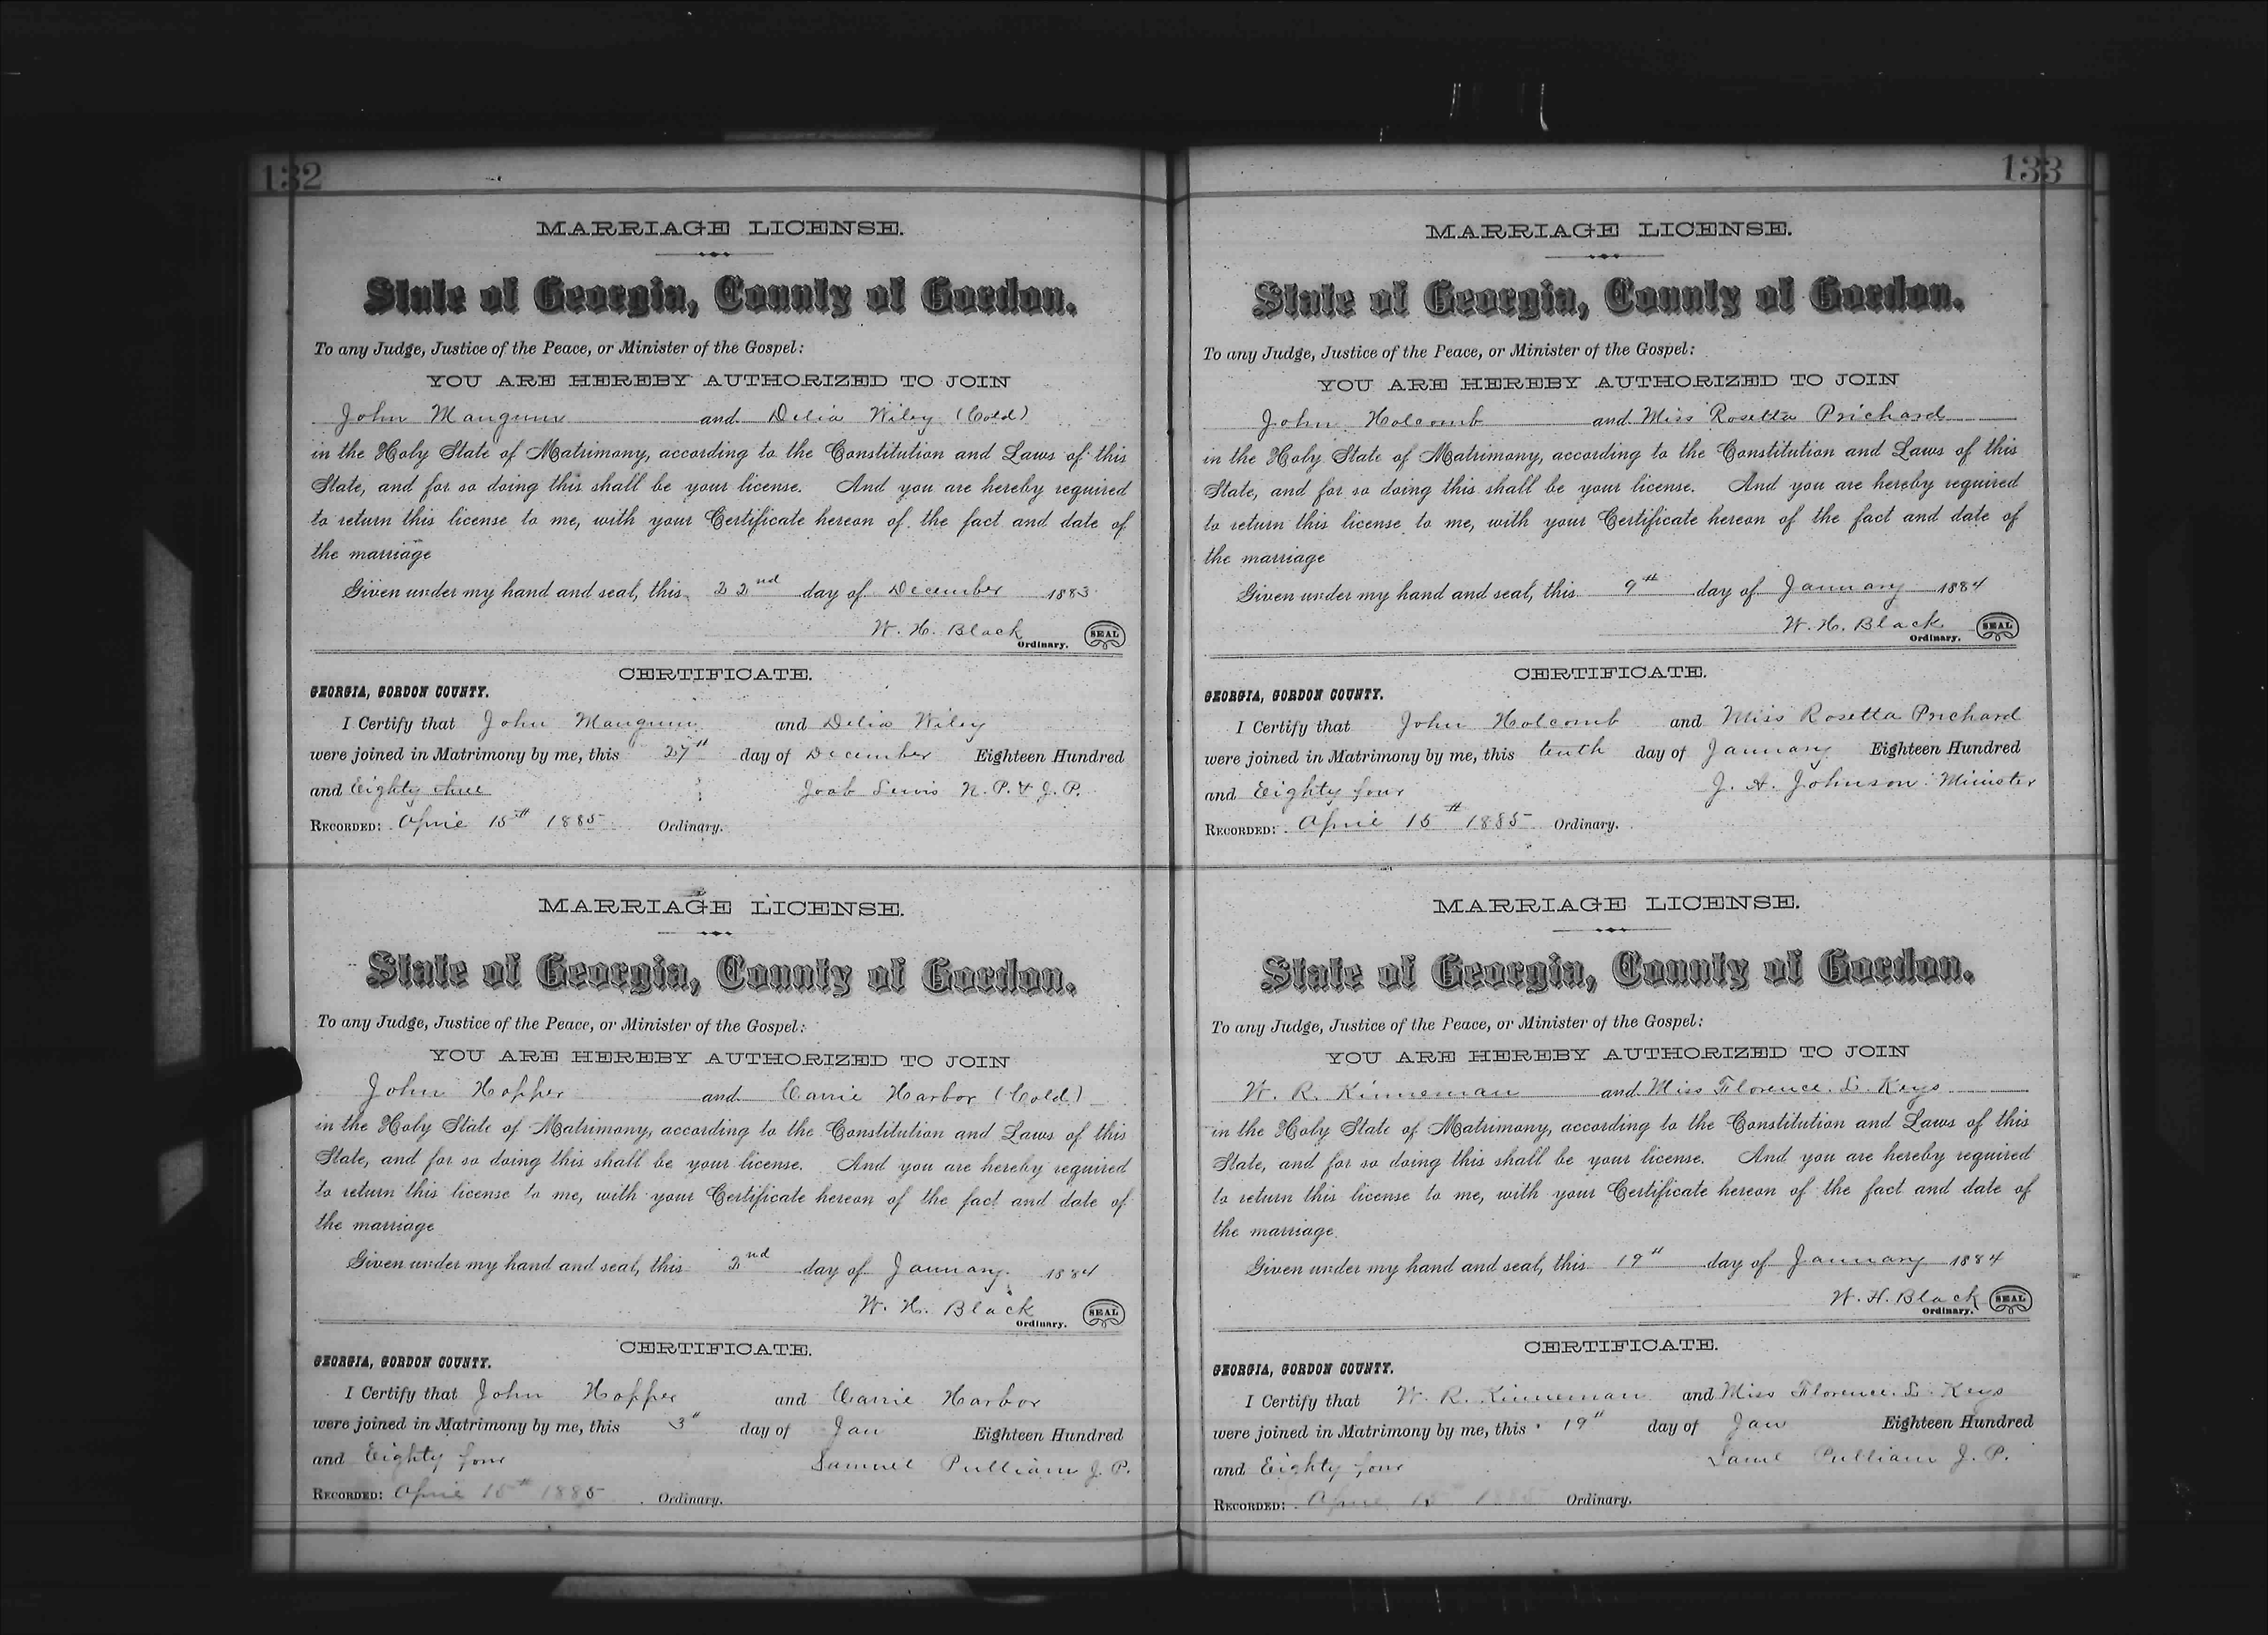 132
MARRIAGE LICENSE.
State of Georgia, County of Gordon.
To any Judge, Justice of the Peace, or Minister of the Gospel:
YOU ARE HEREBY AUTHORIZED TO JOIN
John Mangum and Delia Wiley (Cold)
in the Holy State of Matrimony, according to the Constitution and Laws of this
State, and for so doing this shall be your license. And you are hereby required
to return this license to me, with your Certificate hereon of the fact and date of
the marriage
Given under my hand and seal, this 22nd day of December 1883
W. H. Black SEAL
Ordinary.
CERTIFICATE.
GEORGIA, GORDON COUNTY.
I Certify that John Mangum and Delia Wiley
were joined in Matrimony by me, this 27th day of December Eighteen Hundred
and Eighty three Joab Lewis N. P. & J. P.
RECORDED: April 15th 1885 Ordinary.
MARRIAGE LICENSE.
State of Georgia, County of Gordon.
To any Judge, Justice of the Peace, or Minister of the Gospel:
YOU ARE HEREBY AUTHORIZED TO JOIN
John Hopper and Carrie Harbor (Cold)
in the Holy State of Matrimony, according to the Constitution and Laws of this
State, and for so doing this shall be your license. And you are hereby required
to return this license to me, with your Certificate hereon of the fact and date of
the marriage
Given under my hand and seal, this 2nd day of January 1884
W. H. Black SEAL
Ordinary.
CERTIFICATE.
GEORGIA, GORDON COUNTY.
I Certify that John Hopper and Carrie Harbor
were joined in Matrimony by me, this 3" day of Jan Eighteen Hundred
and Eighty four Samuel Pulliam J. P.
RECORDED: April 15th 1885 Ordinary.
133
MARRIAGE LICENSE.
State of Georgia, County of Gordon.
To any Judge, Justice of the Peace, or Minister of the Gospel:
YOU ARE HEREBY AUTHORIZED TO JOIN
John Holcomb and Miss Rosetta Prichard
in the Holy State of Matrimony, according to the Constitution and Laws of this
State, and for so doing this shall be your license. And you are hereby required
to return this license to me, with your Certificate hereon of the fact and date of
the marriage
Given under my hand and seal, this 9th day of January 1884
W. H. Black SEAL
Ordinary.
CERTIFICATE.
GEORGIA, GORDON COUNTY.
I Certify that John Holcomb and Miss Rosetta Prichard
were joined in Matrimony by me, this tenth day of January Eighteen Hundred
and Eighty four J. A. Johnson Minister
RECORDED: April 15th 1885 Ordinary.
MARRIAGE LICENSE.
State of Georgia, County of Gordon.
To any Judge, Justice of the Peace, or Minister of the Gospel:
YOU ARE HEREBY AUTHORIZED TO JOIN
W. R. Kinneman and Miss Florence L. Keys
in the Holy State of Matrimony, according to the Constitution and Laws of this
State, and for so doing this shall be your license. And you are hereby required
to return this license to me, with your Certificate hereon of the fact and date of
the marriage
Given under my hand and seal, this 19" day of January 1884
W. H. Black SEAL
Ordinary.
CERTIFICATE.
GEORGIA, GORDON COUNTY.
I Certify that W. R. Kinneman and Miss Florence L. Keys
were joined in Matrimony by me, this 19" day of Jan Eighteen Hundred
and Eighty four Saml Pulliam J. P.
RECORDED: April 15 1885 Ordinary.